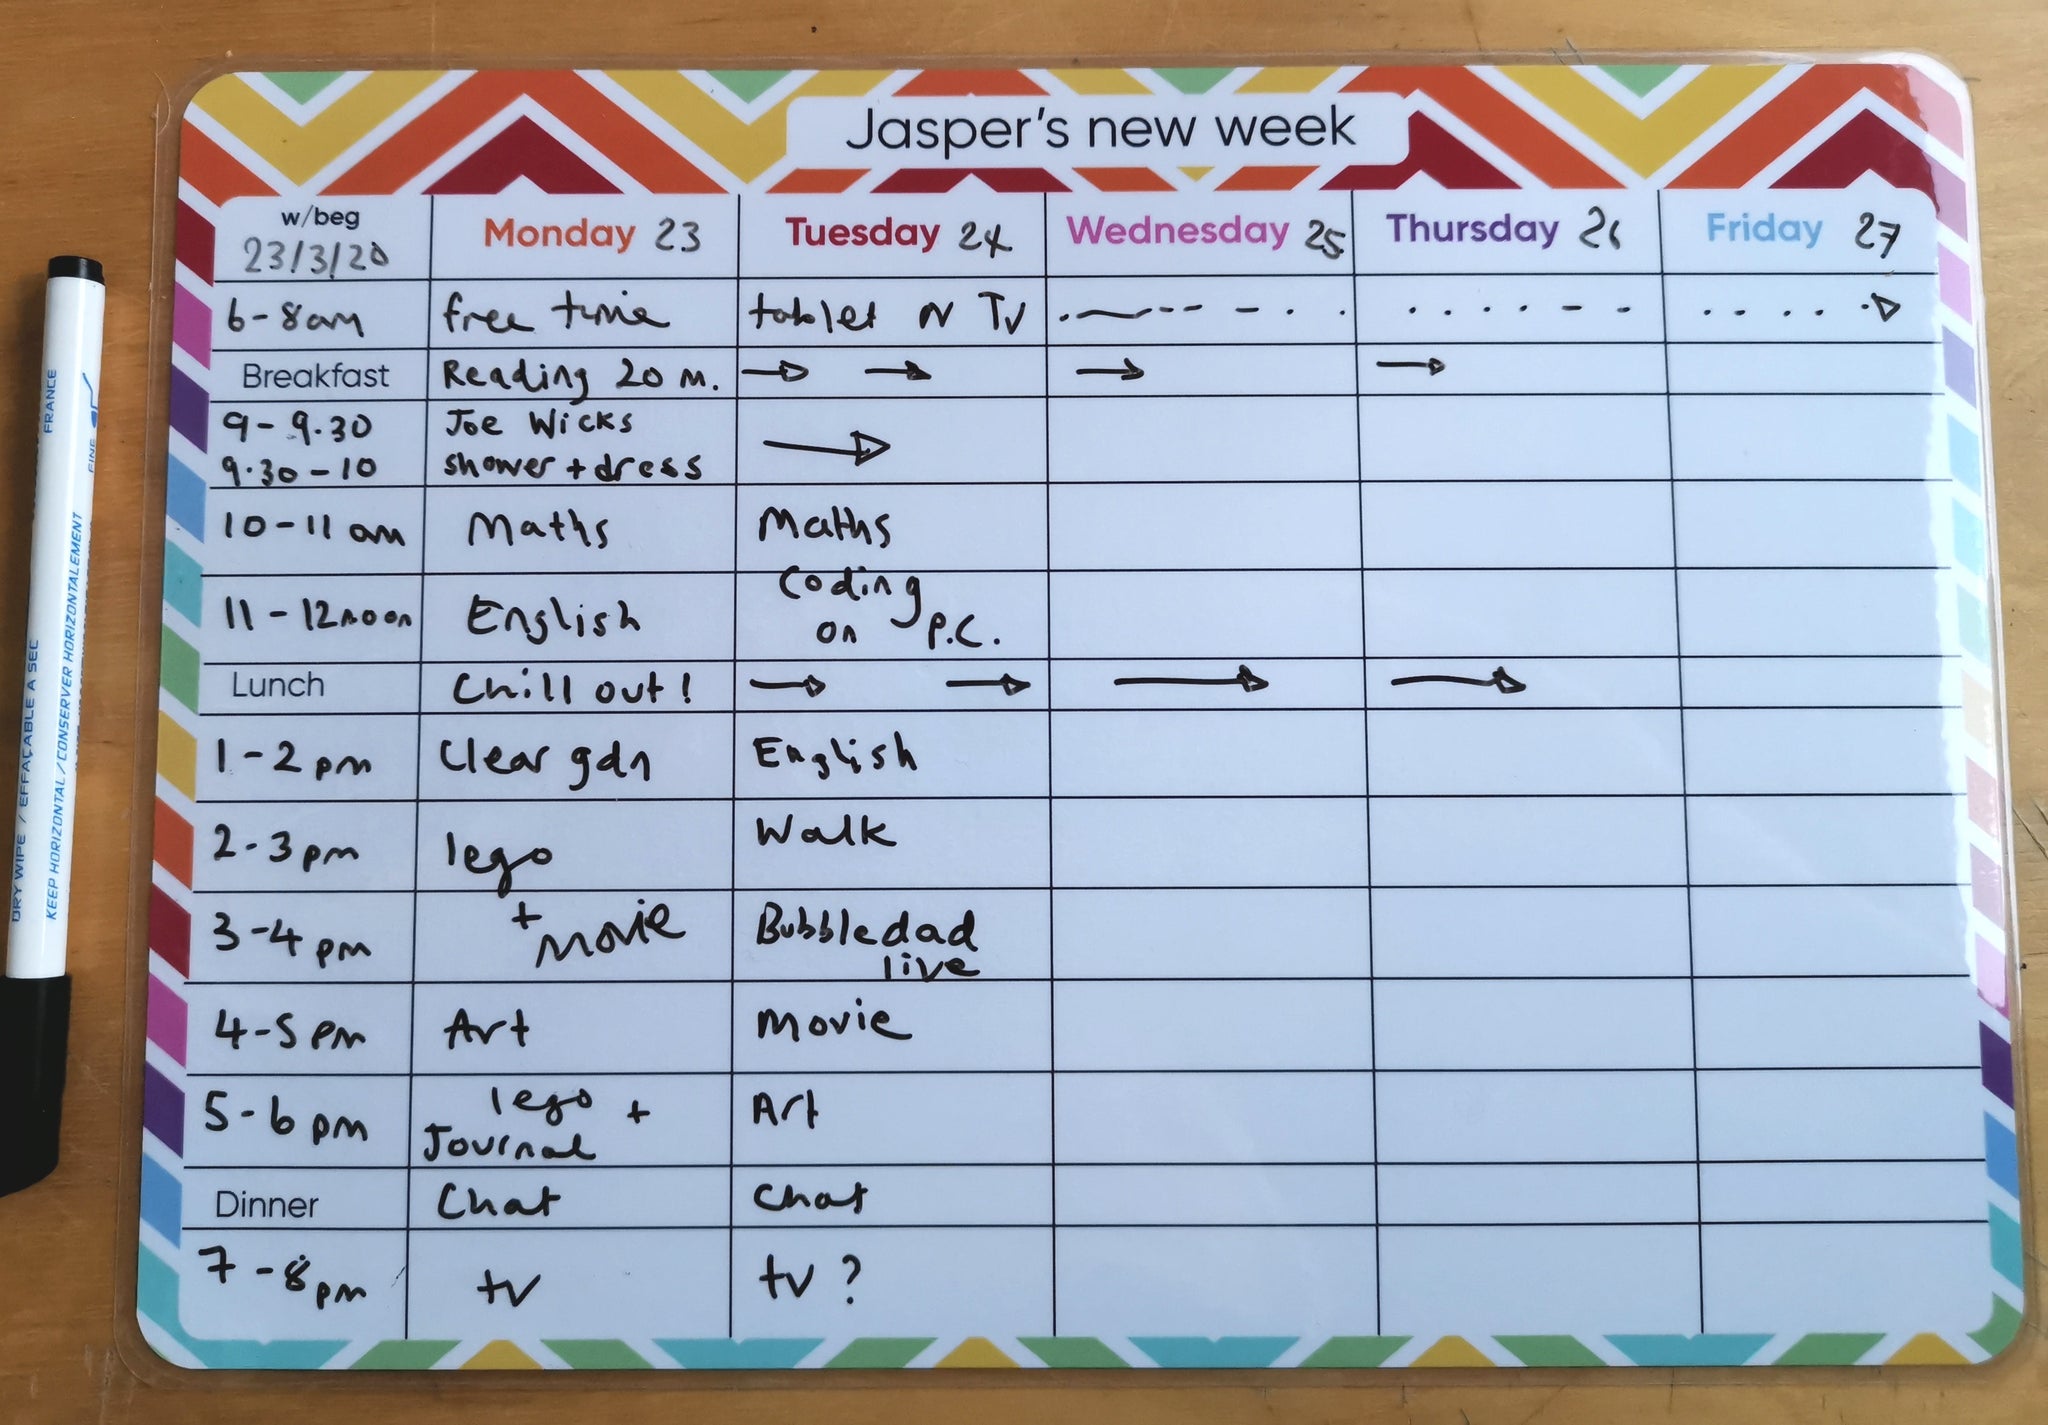 Jasper's new week
w/beg
23/3/20
Monday 23
Tuesday 24
Wednesday 25
Thursday 26
Friday 27
6-8am
free time
tablet or TV
Breakfast
Reading 20 m.
9-9.30
9.30-10
Joe Wicks
shower + dress
10-11 am
Maths
Maths
11-12noon
English
Coding
on P.C.
Lunch
Chill out!
1-2 pm
Clear gdn
English
2-3pm
lego
Walk
3-4pm
+ movie
Bubbledad
live
4-5pm
Art
movie
5-6pm
lego +
Journal
Art
Dinner
Chat
Chat
7-8pm
tv
tv ?
FRANCE
FINE
DRY WIPE / EFFAÇABLE A SEC
KEEP HORIZONTAL/CONSERVER HORIZONTALEMENT